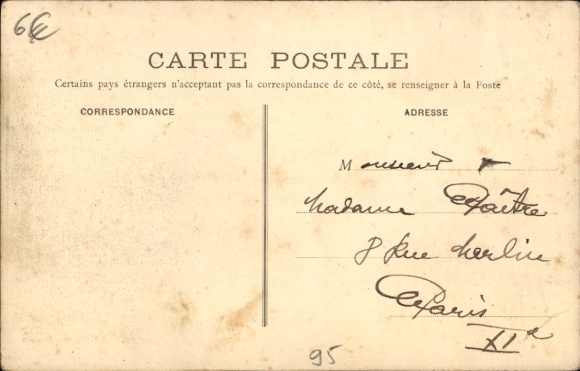 6€
CARTE POSTALE
Certains pays étrangers n'acceptant pas la correspondance de ce côté, se renseigner à la Poste
CORRESPONDANCE
ADRESSE
Monsieur +
Madame Maître
8 Rue Merlin
Paris
XIe
95